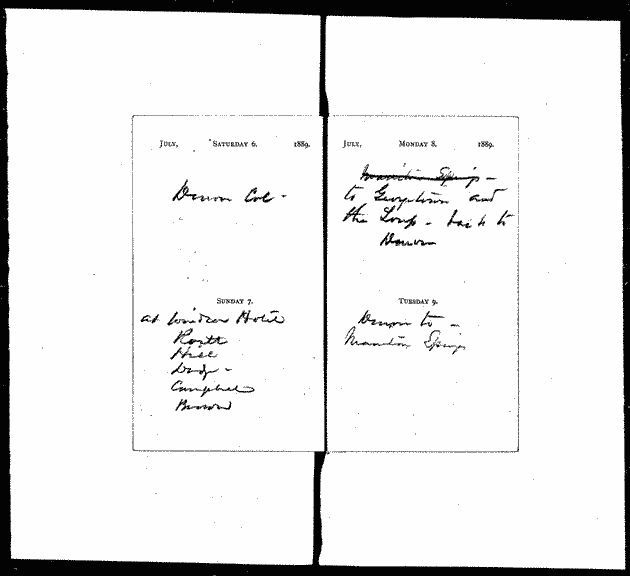 JULY, SATURDAY 6. 1889.
Denver Col -
SUNDAY 7.
at Windsor Hotel
Routt
Hill
Campbell
Brown
JULY, MONDAY 8. 1889.
Manitou Springs -
to Georgetown and
the Loop - back to
Denver
TUESDAY 9.
Denver to -
Manitou Springs